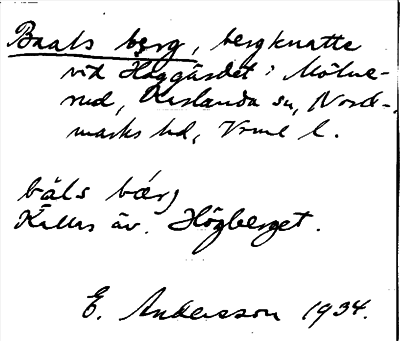 Baals berg, bergknatte
vid Höggärdet i Mölne-
rud, Ölserud sn, Nord-
marks hd, Vrml l.
bäls bærj
Kallas äv. Högberget.
E. Andersson 1934.